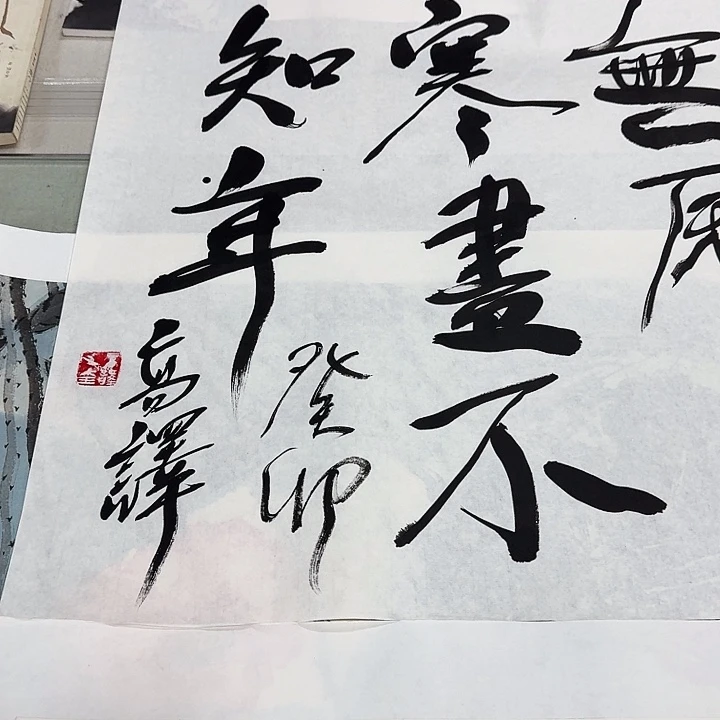 無
寒盡不
知年
癸卯
高譯